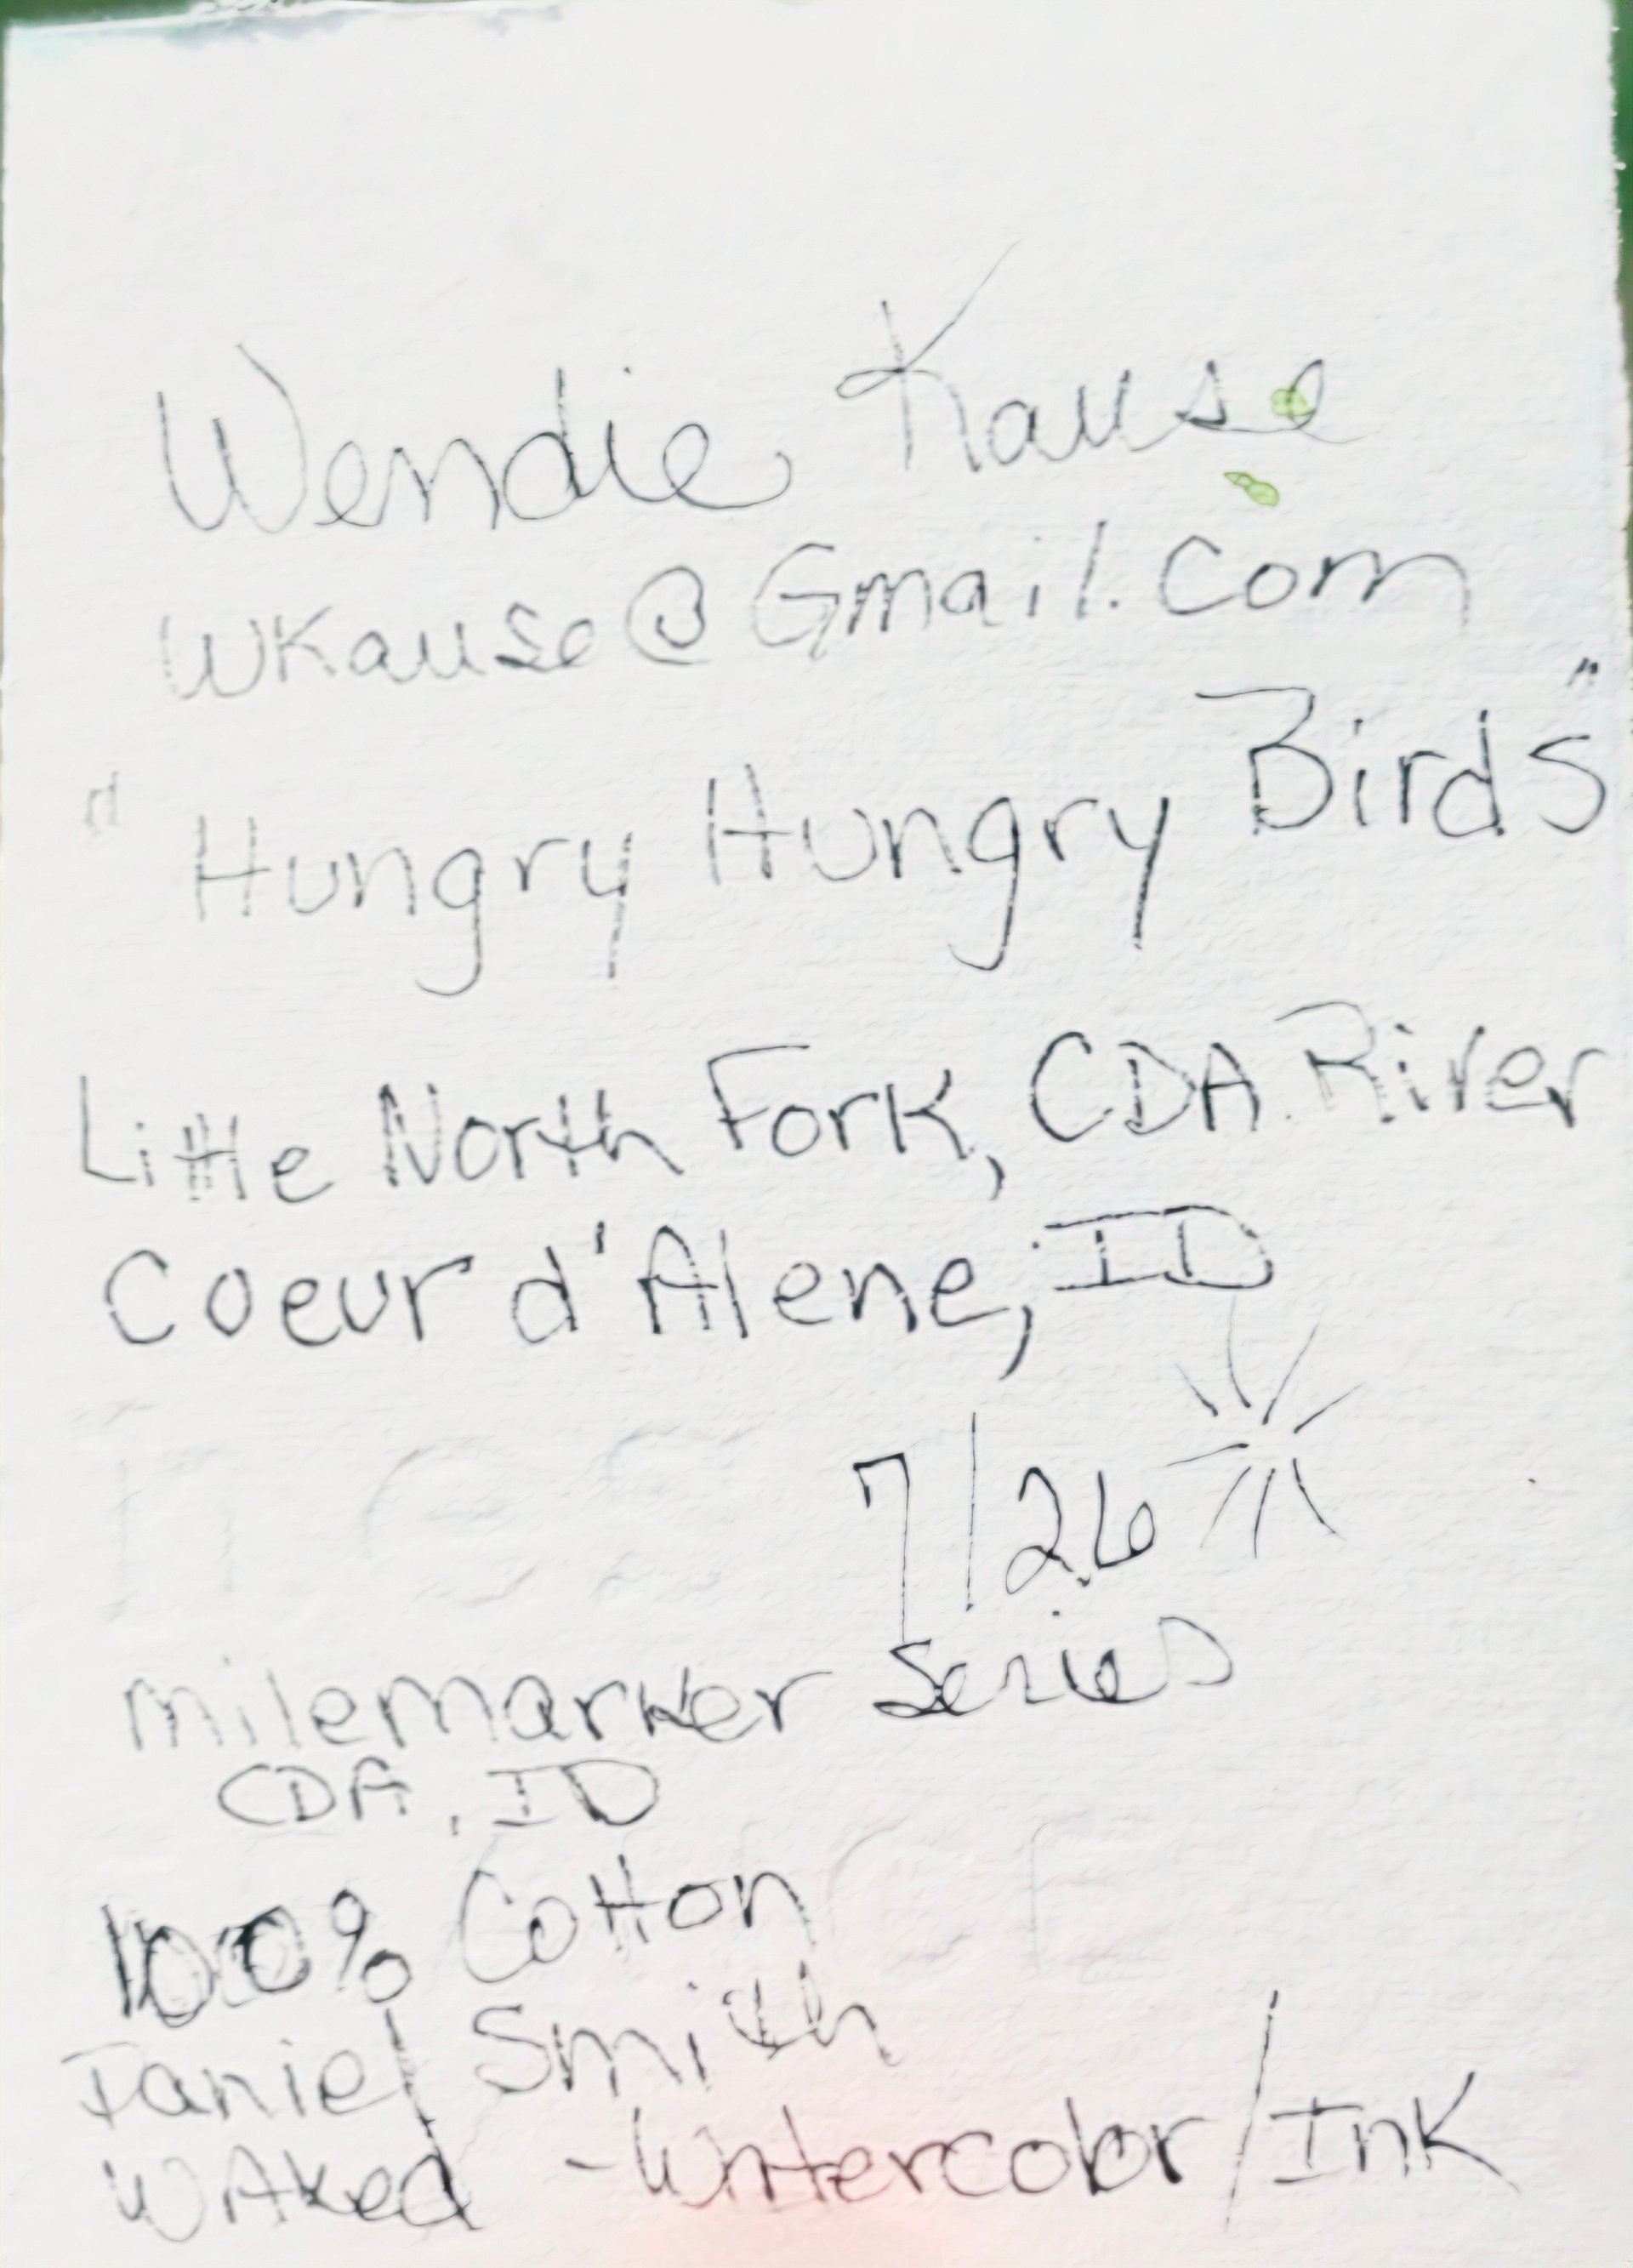 Wendie Kause
WKause@Gmail.com
"Hungry Hungry Birds"
Little North Fork, CDA River
Coeur d'Alene, ID
7/26
milemarker Series
CDA, ID
100% Cotton
Daniel Smith
WAxed - Watercolor/Ink